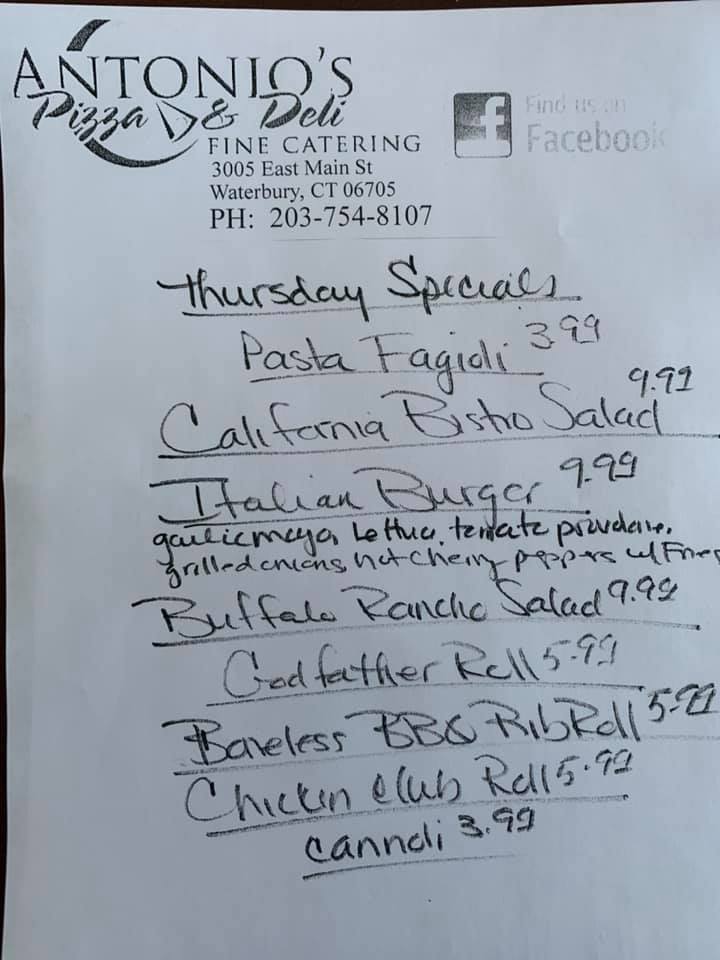 ANTONIO'S
Pizza & Deli
FINE CATERING
3005 East Main St
Waterbury, CT 06705
PH: 203-754-8107
Find us on
Facebook
Thursday Specials
Pasta Fagioli 3.99
California Bistro Salad 9.99
Italian Burger 9.99
garlic mayo, Lettuc, tomato provolone,
grilled onions hot Cherry peppers w/ Fries
Buffalo Rancho Salad 9.99
Godfather Roll 5.99
Boneless BBQ Rib Roll 5.99
Chicken Club Roll 5.99
Cannoli 3.99